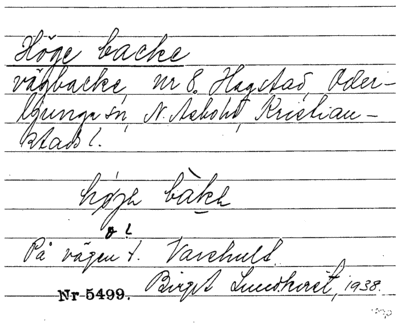 Höge backe
vägbacke, nr 8. Hagstad, Oder-
ljunga sn, N. Åsbohd, Kristian-
stads l.
högə bàkə
På vägen t. Varshult.
Birgit Lundkvist, 1938.
Nr 5499.